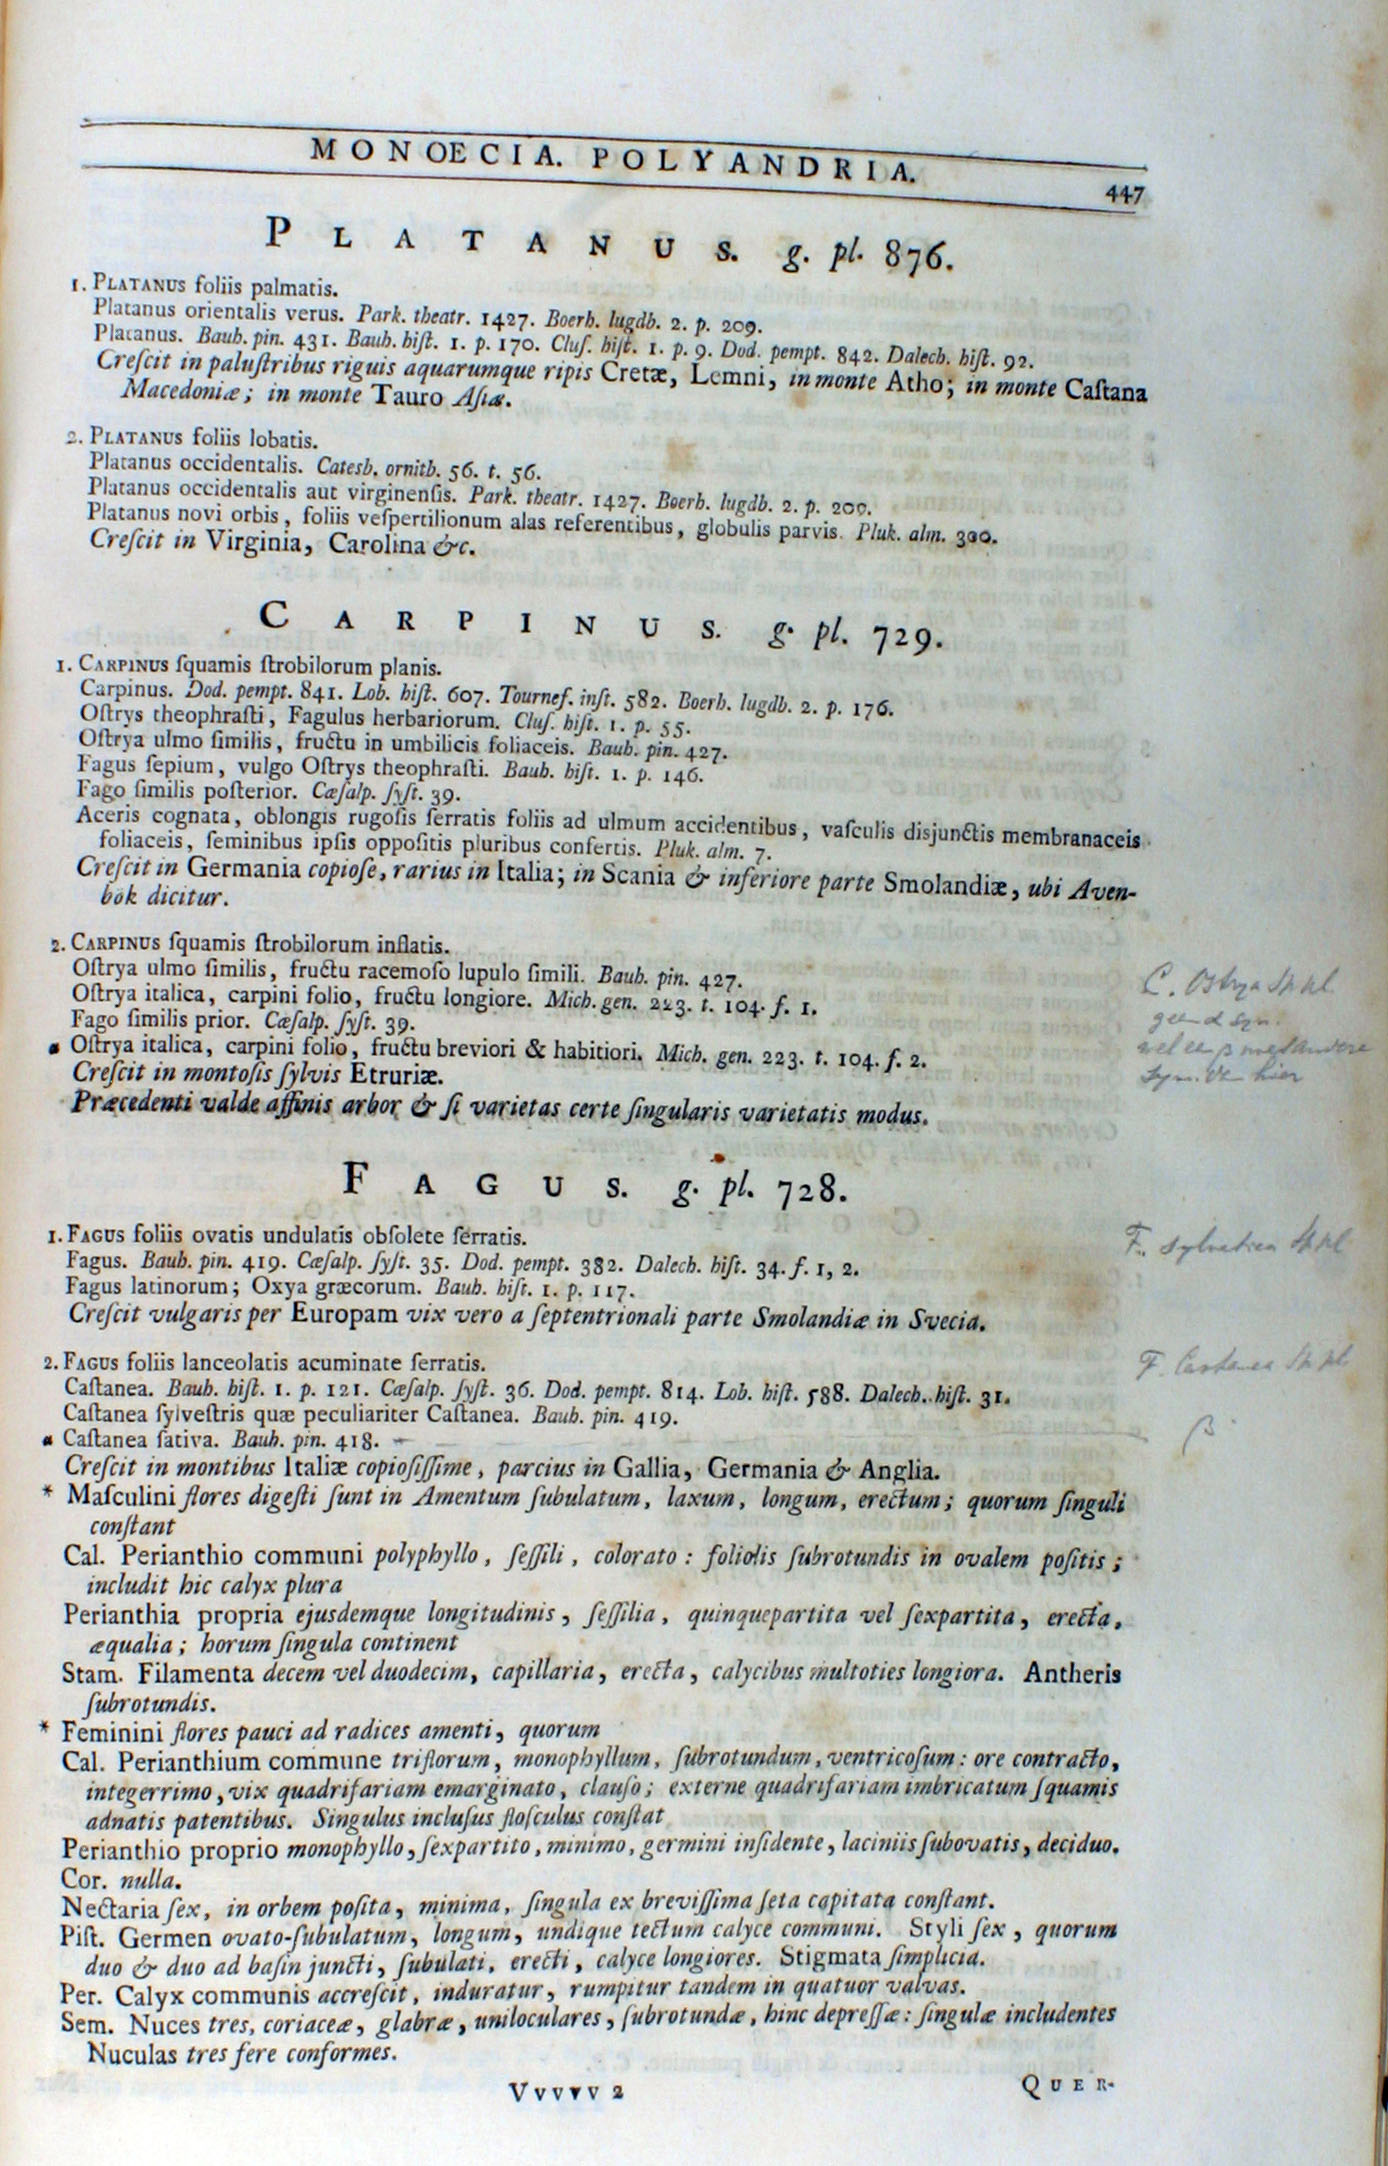 MONOECIA. POLYANDRIA.
447
PLATANUS. g. pl. 876.
1. PLATANUS foliis palmatis.
Platanus orientalis verus. Park. theatr. 1427. Boerh. lugdb. 2. p. 209.
Platanus. Bauh. pin. 431. Bauh. hiſt. 1. p. 170. Cluſ. hiſt. 1. p. 9. Dod. pempt. 842. Dalech. hiſt. 92.
Creſcit in paluſtribus riguis aquarumque ripis Cretæ, Lemni, in monte Atho; in monte Caſtana
Macedoniæ; in monte Tauro Aſiæ.
2. PLATANUS foliis lobatis.
Platanus occidentalis. Catesb. ornith. 56. t. 56.
Platanus occidentalis aut virginenſis. Park. theatr. 1427. Boerh. lugdb. 2. p. 209.
Platanus novi orbis, foliis veſpertilionum alas referentibus, globulis parvis. Pluk. alm. 300.
Creſcit in Virginia, Carolina &c.
CARPINUS. g. pl. 729.
1. CARPINUS ſquamis ſtrobilorum planis.
Carpinus. Dod. pempt. 841. Lob. hiſt. 607. Tournef. inſt. 582. Boerh. lugdb. 2. p. 176.
Oſtrys theophraſti, Fagulus herbariorum. Cluſ. hiſt. 1. p. 55.
Oſtrya ulmo ſimilis, fructu in umbilicis foliaceis. Bauh. pin. 427.
Fagus ſepium, vulgo Oſtrys theophraſti. Bauh. hiſt. 1. p. 146.
Fago ſimilis poſterior. Cæſalp. ſyſt. 39.
Aceris cognata, oblongis rugoſis ſerratis foliis ad ulmum accidentibus, vaſculis disjunctis membranaceis
foliaceis, ſeminibus ipſis oppoſitis pluribus confertis. Pluk. alm. 7.
Creſcit in Germania copioſe, rarius in Italia; in Scania & inferiore parte Smolandiæ, ubi Aven-
bok dicitur.
2. CARPINUS ſquamis ſtrobilorum inflatis.
Oſtrya ulmo ſimilis, fructu racemoſo lupulo ſimili. Bauh. pin. 427.
Oſtrya italica, carpini folio, fructu longiore. Mich. gen. 223. t. 104. f. 1.
Fago ſimilis prior. Cæſalp. ſyſt. 39.
α Oſtrya italica, carpini folio, fructu breviori & habitiori. Mich. gen. 223. t. 104. f. 2.
Creſcit in montoſis ſylvis Etruriæ.
Præcedenti valde affinis arbor & ſi varietas certe ſingularis varietatis modus.
C. Ostrya Sp pl
FAGUS. g. pl. 728.
1. FAGUS foliis ovatis undulatis obſolete ſerratis.
Fagus. Bauh. pin. 419. Cæſalp. ſyſt. 35. Dod. pempt. 382. Dalech. hiſt. 34. f. 1, 2.
Fagus latinorum; Oxya græcorum. Bauh. hiſt. 1. p. 117.
Creſcit vulgaris per Europam vix vero a ſeptentrionali parte Smolandiæ in Svecia.
F. sylvatica Sp pl
2. FAGUS foliis lanceolatis acuminate ſerratis.
Caſtanea. Bauh. hiſt. 1. p. 121. Cæſalp. ſyſt. 36. Dod. pempt. 814. Lob. hiſt. 588. Dalech. hiſt. 31.
Caſtanea ſylveſtris quæ peculiariter Caſtanea. Bauh. pin. 419.
α Caſtanea ſativa. Bauh. pin. 418.
F. Castanea Sp pl
β
Creſcit in montibus Italiæ copioſiſſime, parcius in Gallia, Germania & Anglia.
* Maſculini flores digeſti ſunt in Amentum ſubulatum, laxum, longum, erectum; quorum ſinguli
conſtant
Cal. Perianthio communi polyphyllo, ſeſſili, colorato: foliolis ſubrotundis in ovalem poſitis;
includit hic calyx plura
Perianthia propria ejusdemque longitudinis, ſeſſilia, quinquepartita vel ſexpartita, erecta,
æqualia; horum ſingula continent
Stam. Filamenta decem vel duodecim, capillaria, erecta, calycibus multoties longiora. Antheris
ſubrotundis.
* Feminini flores pauci ad radices amenti, quorum
Cal. Perianthium commune triflorum, monophyllum, ſubrotundum, ventricoſum: ore contracto,
integerrimo, vix quadrifariam emarginato, clauſo; externe quadrifariam imbricatum ſquamis
adnatis patentibus. Singulus incluſus floſculus conſtat
Perianthio proprio monophyllo, ſexpartito, minimo, germini inſidente, laciniis ſubovatis, deciduo.
Cor. nulla.
Nectaria ſex, in orbem poſita, minima, ſingula ex breviſſima ſeta capitata conſtant.
Piſt. Germen ovato-ſubulatum, longum, undique tectum calyce communi. Styli ſex, quorum
duo & duo ad baſin juncti, ſubulati, erecti, calyce longiores. Stigmata ſimplicia.
Per. Calyx communis accreſcit, induratur, rumpitur tandem in quatuor valvas.
Sem. Nuces tres, coriaceæ, glabræ, uniloculares, ſubrotundæ, hinc depreſſæ: ſingulæ includentes
Nuculas tres fere conformes.
Vvvvv 2
QUER-